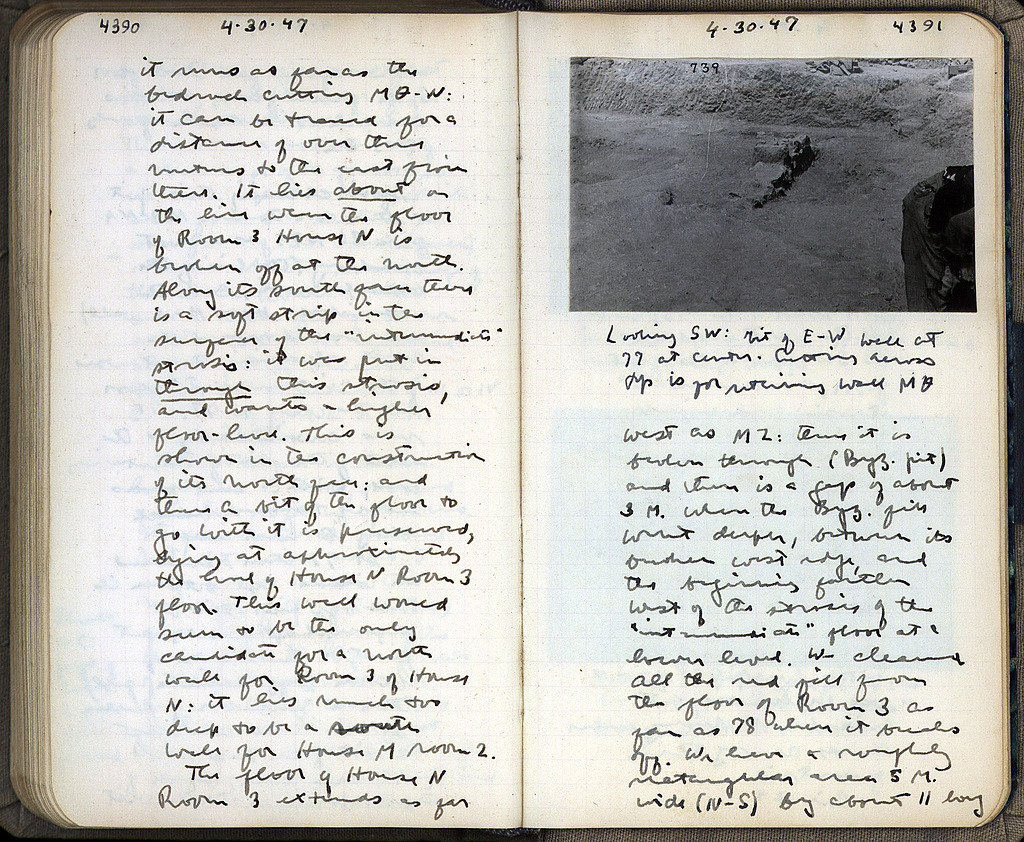 4390 4·30·47
it runs as far as the
bedrock cutting ΜΘ-Ν:
it can be traced for a
distance of over three
meters to the east from
there. It lies about on
the line where the floor
of Room 3 House N is
broken off at the north.
Along its south face there
is a soft strip in the
surface of the "intermediate"
strosis: it was put in
through this strosis,
and wants a higher
floor-level. This is
shown in the construction
of its north face: and
then a bit of the floor to
go with it is preserved,
lying at approximately
the level of House N Room 3
floor. This wall would
seem to be the only
candidate for a north
wall for Room 3 of House
N: it lies much too
deep to be a south
wall for House M room 2.
The floor of House N
Room 3 extends as far
4·30·47 4391
739
Looking SW: bit of E-W wall at
77 at center. Cutting across
top is for retaining wall ΜΘ
west as ΜΖ: there it is
broken through (Byz. pit)
and there is a gap of about
3 M. where the Byz. fill
went deeper, between its
broken west edge, and
the beginning farther
west of the strosis of the
"intermediate" floor at a
lower level. We cleaned
all the red fill from
the floor of Room 3 as
far as 78 where it breaks
off. We have a roughly
rectangular area 5 M.
wide (N-S) by about 11 long